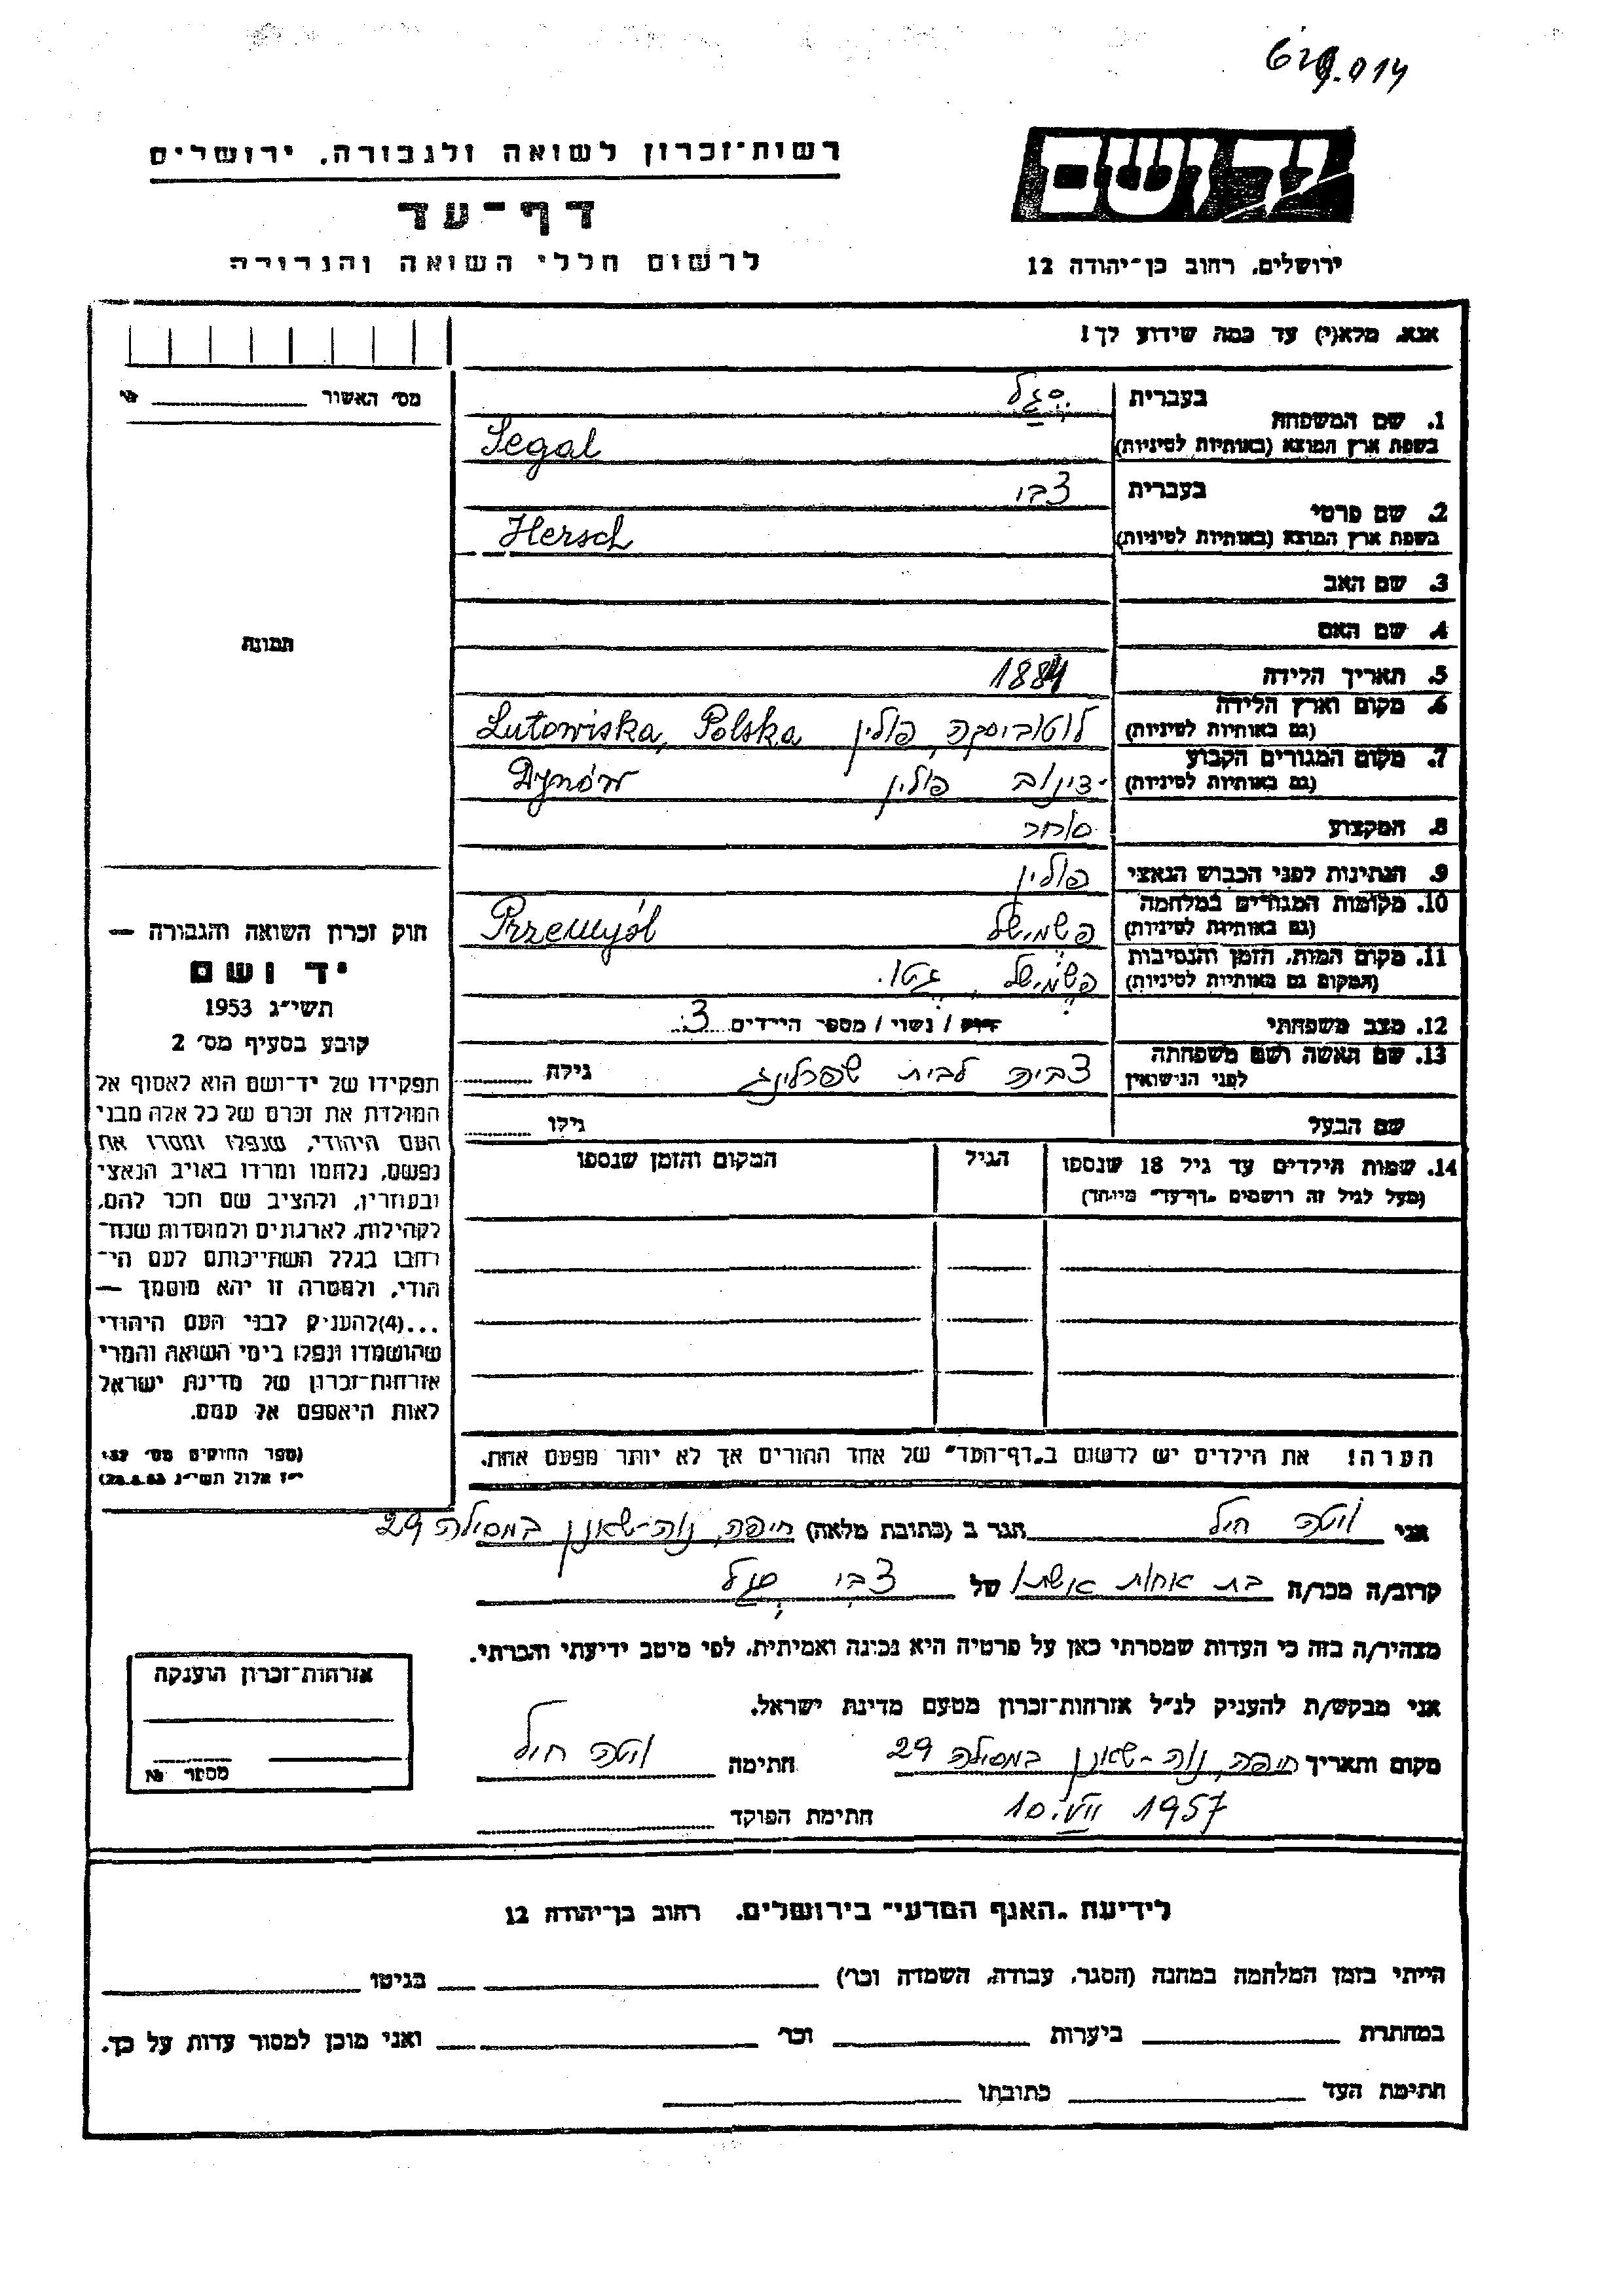 רשות־זכרון לשואה ולגבורה, ירושלים
דף־עד
לרשום חללי השואה והגבורה
ירושלים, רחוב בן־יהודה 12
אנא, מלא(י) עד כמה שידוע לך!
מס׳ האשור
תמונה
1. שם המשפחה
בעברית סגל
בשפת ארץ המוצא (באותיות לטיניות) Segal
2. שם פרטי
בעברית צבי
בשפת ארץ המוצא (באותיות לטיניות) Hersch
3. שם האב
4. שם האם
5. תאריך הלידה 1884
6. מקום וארץ הלידה
(גם באותיות לטיניות) לוטוביסקה, פולין Lutowiska, Polska
7. מקום המגורים הקבוע
(גם באותיות לטיניות) דינוב פולין Dynów
8. המקצוע סוחר
9. הנתינות לפני הכבוש הנאצי פולין
10. מקומות המגורים במלחמה
(גם באותיות לטיניות) פשמישל Przemyśl
11. מקום המות, הזמן והנסיבות
(המקום גם באותיות לטיניות) פשמישל, גטו.
12. מצב משפחתי רווק / נשוי / מספר הילדים 3
13. שם האשה ושם משפחתה
לפני הנישואין צביה לבית שפרלינג גילה
שם הבעל גילו
14. שמות הילדים עד גיל 18 שנספו הגיל המקום והזמן שנספו
(מעל לגיל זה רושמים „דף־עד״ מיוחד)
הערה! את הילדים יש לרשום ב„דף־העד״ של אחד ההורים אך לא יותר מפעם אחת.
חוק זכרון השואה והגבורה —
יד ושם
תשי״ג 1953
קובע בסעיף מס׳ 2
תפקידו של יד־ושם הוא לאסוף אל
המולדת את זכרם של כל אלה מבני
העם היהודי, שנפלו ומסרו את
נפשם, נלחמו ומרדו באויב הנאצי
ובעוזריו, ולהציב שם וזכר להם,
לקהילות, לארגונים ולמוסדות שנח־
רבו בגלל השתייכותם לעם הי־
הודי, ולמטרה זו יהא מוסמך —
...(4)להעניק לבני העם היהודי
שהושמדו ונפלו בימי השואה והמרי
אזרחות־זכרון של מדינת ישראל
לאות היאספם אל עמם.
(ספר החוקים מס׳ 132
י״ז אלול תשי״ג 28.8.53)
אני ויטה חיל הגר ב (כתובת מלאה) חיפה, נוה־שאנן במסילה 29
קרוב/ה מכר/ה בת אחות אשתו של צבי סגל
מצהיר/ה בזה כי העדות שמסרתי כאן על פרטיה היא נכונה ואמיתית, לפי מיטב ידיעתי והכרתי.
אני מבקש/ת להעניק לנ״ל אזרחות־זכרון מטעם מדינת ישראל.
מקום ותאריך חיפה, נוה־שאנן במסילה 29 חתימה ויטה חיל
10. VII 1957 חתימת הפוקד
אזרחות־זכרון הוענקה
מספר №
לידיעת „האגף המדעי״ בירושלים, רחוב בן־יהודה 12
הייתי בזמן המלחמה במחנה (הסגר, עבודה, השמדה וכר׳) בגיטו
במחתרת ביערות וכר׳ ואני מוכן למסור עדות על כך.
חתימת העד כתובתו